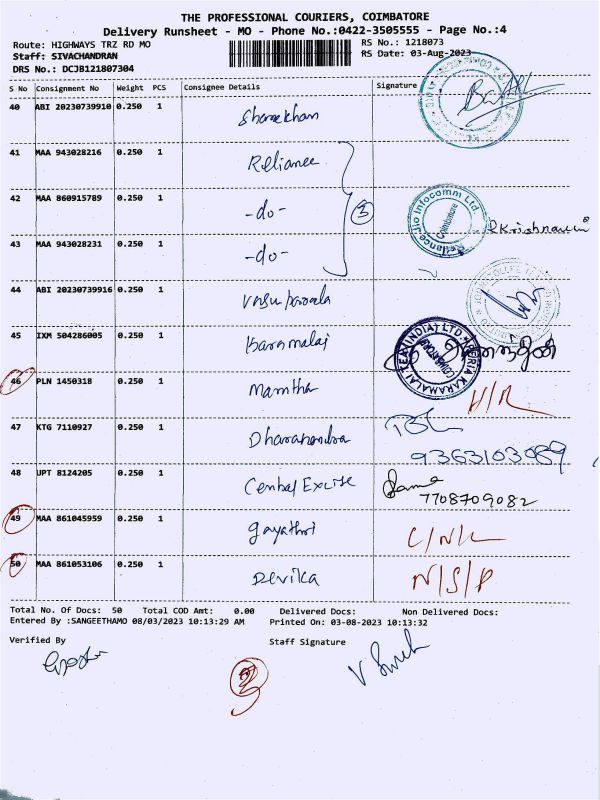 THE PROFESSIONAL COURIERS, COIMBATORE
Delivery Runsheet - MO - Phone No.:0422-3505555 - Page No.:4
Route: HIGHWAYS TRZ RD MO RS No.: 1218073
Staff: SIVACHANDRAN RS Date: 03-Aug-2023
DRS No.: DCJB121807304
S No Consignment No Weight PCS Consignee Details Signature
40 ABI 20230739910 0.250 1 Sharekhan
41 MAA 943028216 0.250 1 Reliance
42 MAA 860915789 0.250 1 -do- 3 Reliance Jio Infocomm Ltd. Coimbatore
43 MAA 943028231 0.250 1 -do-
44 ABI 20230739916 0.250 1
45 IXM 504286005 0.250 1 Karamalai
46 PLN 1450318 0.250 1 Mamtha H/R
47 KTG 7110927 0.250 1
9363103089
48 UPT 8124205 0.250 1 Central Excise
7708709082
49 MAA 861045959 0.250 1 Gayathri C/N/L
50 MAA 861053106 0.250 1 Devika N/S/P
Total No. Of Docs: 50 Total COD Amt: 0.00 Delivered Docs: Non Delivered Docs:
Entered By :SANGEETHAMO 08/03/2023 10:13:29 AM Printed On: 03-08-2023 10:13:32
Verified By Staff Signature